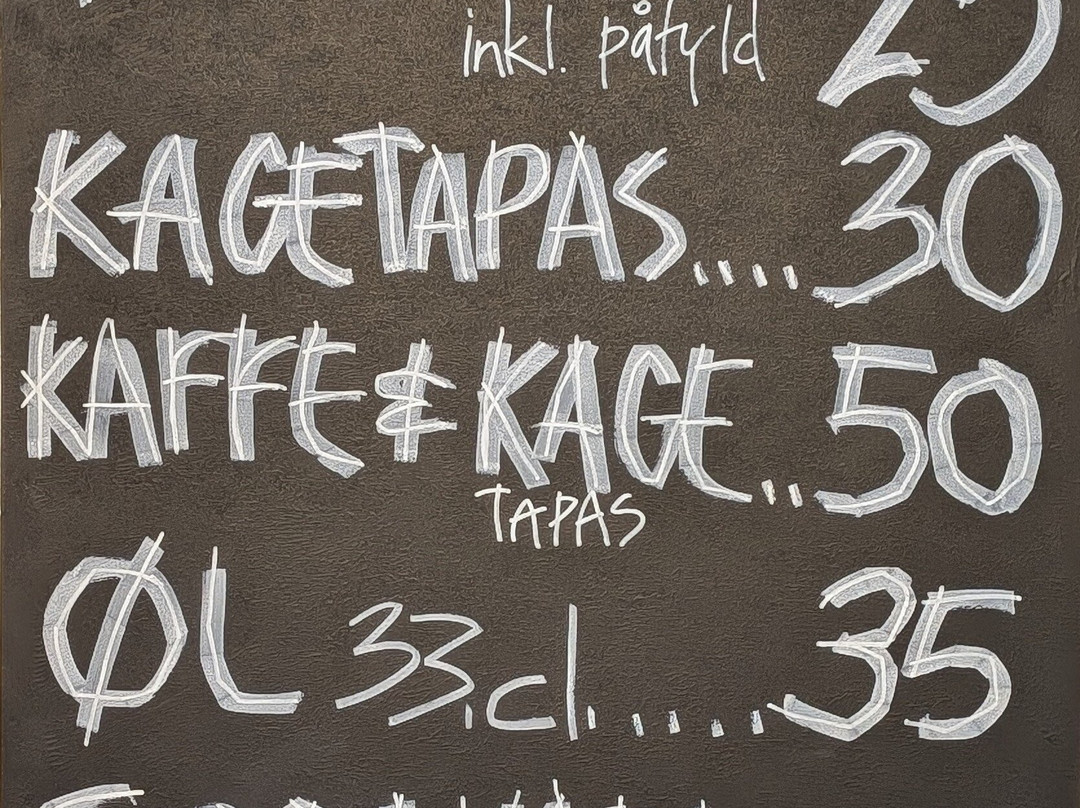 inkl. påfyld 25
KAGETAPAS.... 30
KAFFE & KAGE... 50
TAPAS
ØL 33.cl...... 35